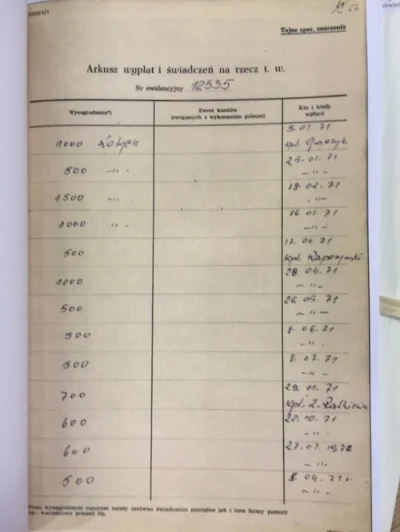 Tajne spec. znaczenia
Arkusz wypłat i świadczeń na rzecz t. w.
Nr ewidencyjny 12535
Wynagrodzenie*)
Zwrot kosztów
(związanych z wykonaniem poleceń)
Kto i kiedy
wpłacił
1000 złotych
5.01.71
kpt.
500 —„—
25.01.71
—„—
1500 —„—
18.02.71
—„—
2000 —„—
16 01. 71
—„—
500
17. 04. 71
kpt.
1000
28. 04. 71
—„—
500
26. 05. 71
—„—
500
8. 06. 71
—„—
500
8. 07. 71
—„—
700
29. 11. 71
kpt. Z.
600
28. 10. 71
—„—
600
—„—
500
04. 71
—„—
Przez wynagrodzenie rozumieć należy zarówno świadczenia pieniężne jak i inne formy pomocy
np. wartościowy prezent itp.